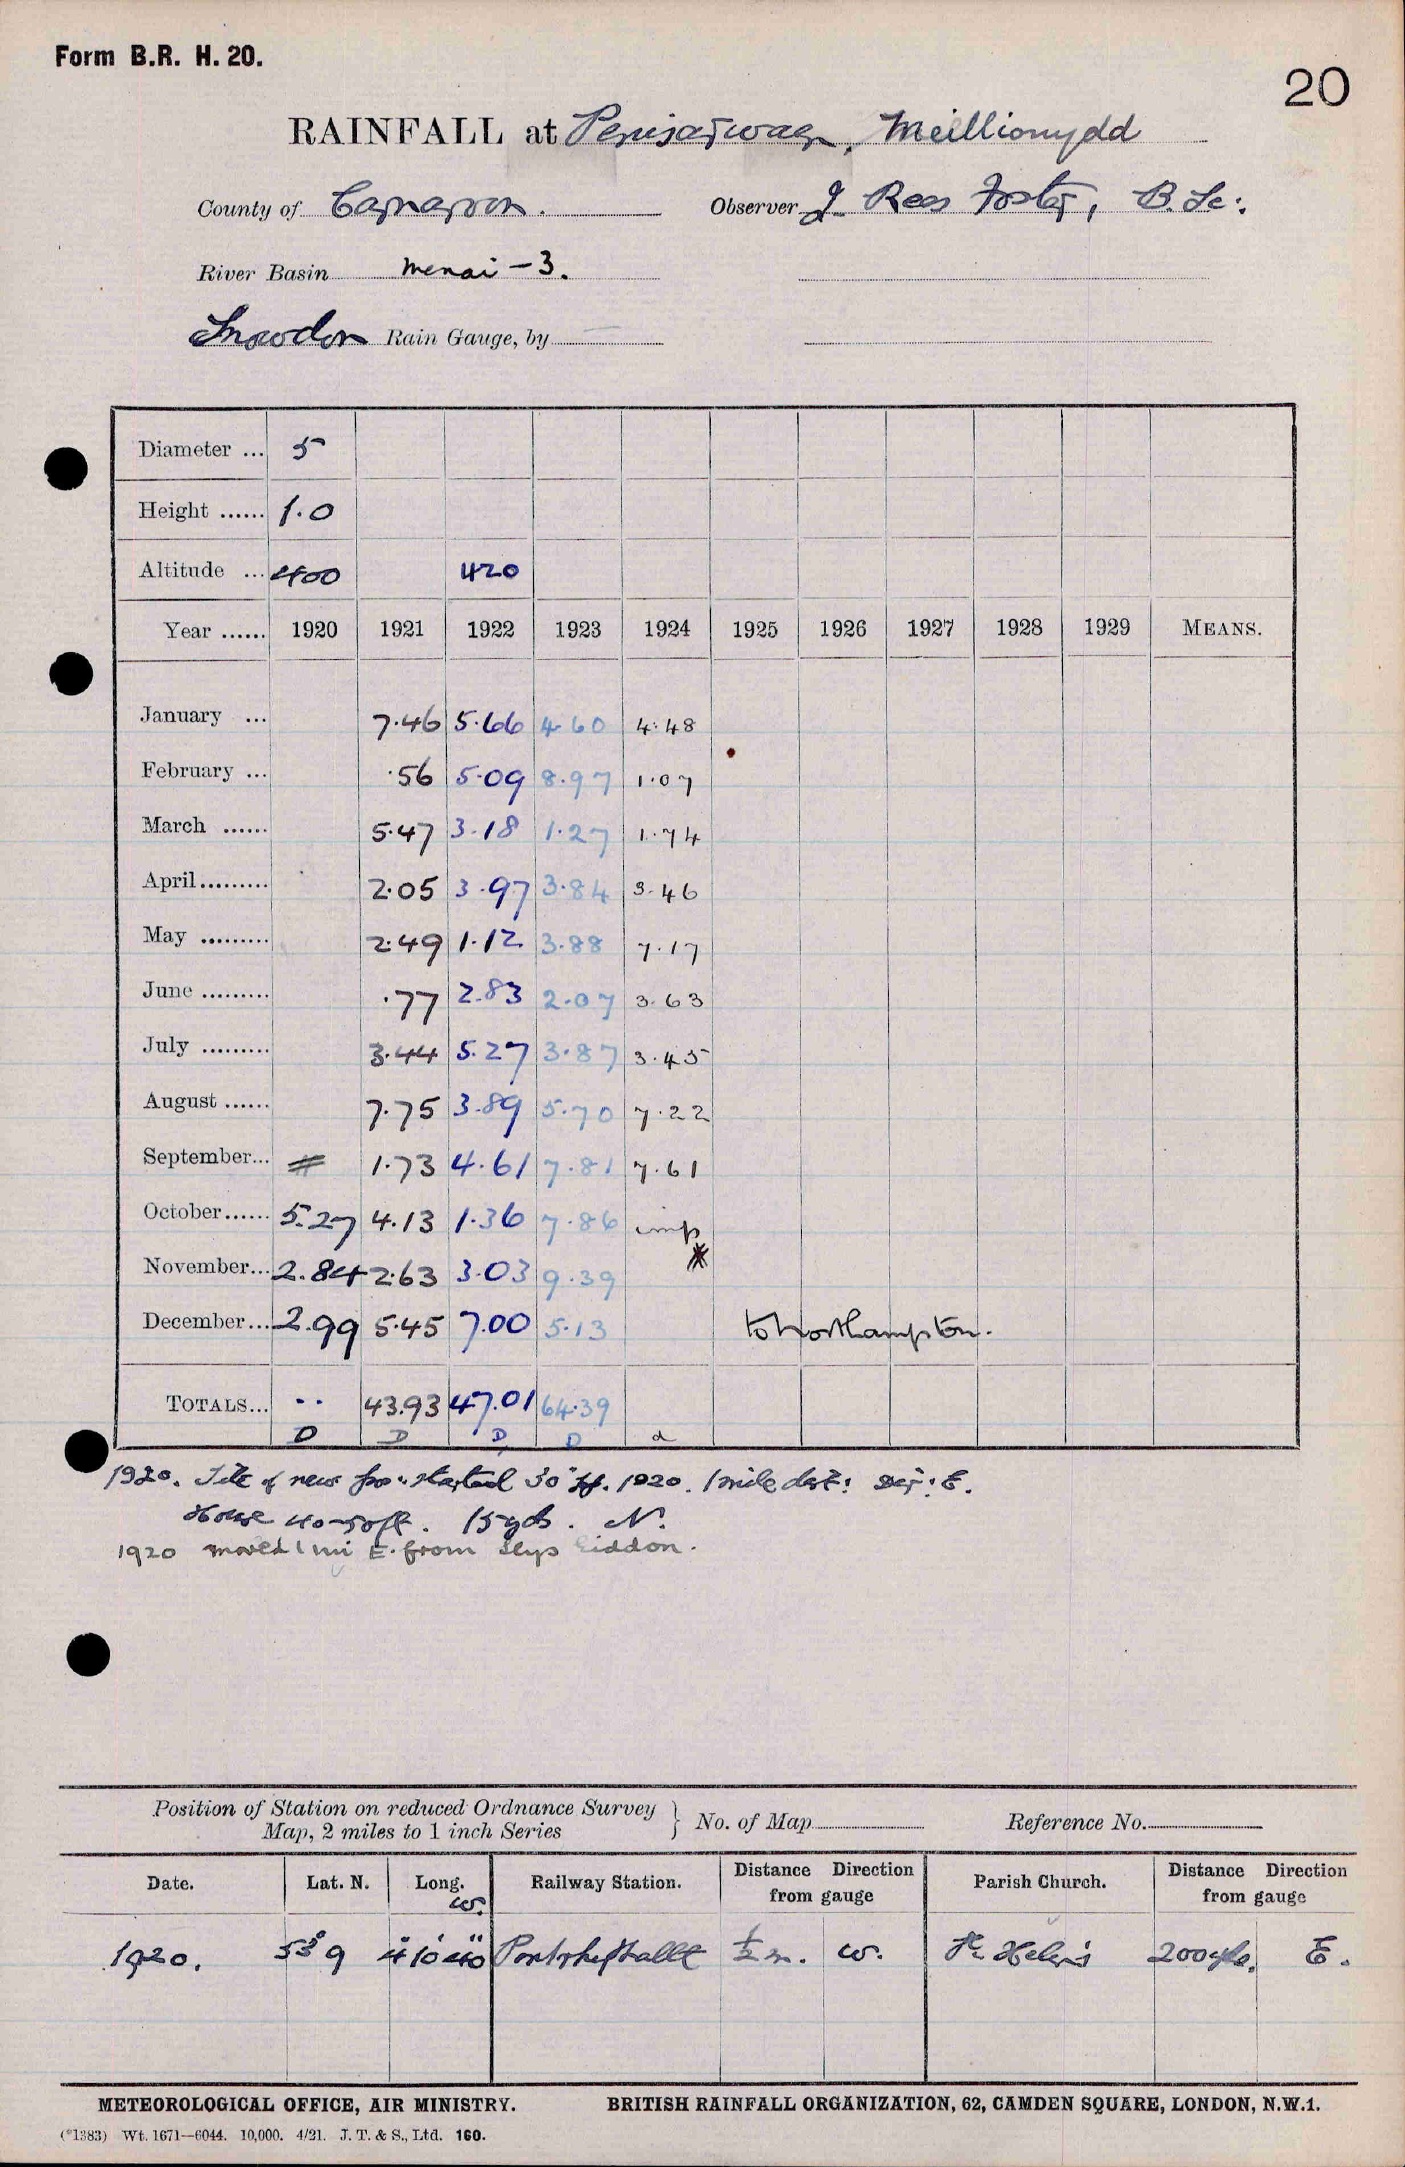 Form B.R. H. 20.
20
RAINFALL at Penisarwaen, Meillionydd
County of Carnarvon. Observer J. Rees Foster, B.Sc.
River Basin Menai - 3.
Snowdon Rain Gauge, by
Diameter ... 5
Height ...... 1.0
Altitude ... 400 420
Year ...... 1920 1921 1922 1923 1924 1925 1926 1927 1928 1929 MEANS.
January ... 7.46 5.66 4.60 4.48
February ... .56 5.09 8.97 1.07
March ...... 5.47 3.18 1.27 1.74
April......... 2.05 3.97 3.84 3.46
May ......... 2.49 1.12 3.88 7.17
June ......... .77 2.83 2.07 3.63
July ......... 3.44 5.27 3.87 3.45
August ...... 7.75 3.89 5.70 7.22
September... 1.73 4.61 7.81 7.61
October...... 5.27 4.13 1.36 7.86 imp
November... 2.84 2.63 3.03 9.39 *
December... 2.99 5.45 7.00 5.13 to Northampton.
TOTALS... .. 43.93 47.01 64.39
D D D D d
1920. of new started 30 1920. 1 mile E.
House 40-50 ft. 15 yds. N.
1920 moved 1 mi E. from Llys Eiddon.
Position of Station on reduced Ordnance Survey Map, 2 miles to 1 inch Series } No. of Map Reference No.
Date. Lat. N. Long. W. Railway Station. Distance Direction from gauge Parish Church. Distance Direction from gauge
1920. 53° 9 4° 10' 40" Pontrhythallt ½ m. W. St. Helen's 200 yds. E.
METEOROLOGICAL OFFICE, AIR MINISTRY. BRITISH RAINFALL ORGANIZATION, 62, CAMDEN SQUARE, LONDON, N.W.1.
(*1383) Wt. 1671—6044. 10,000. 4/21. J. T. & S., Ltd. 160.